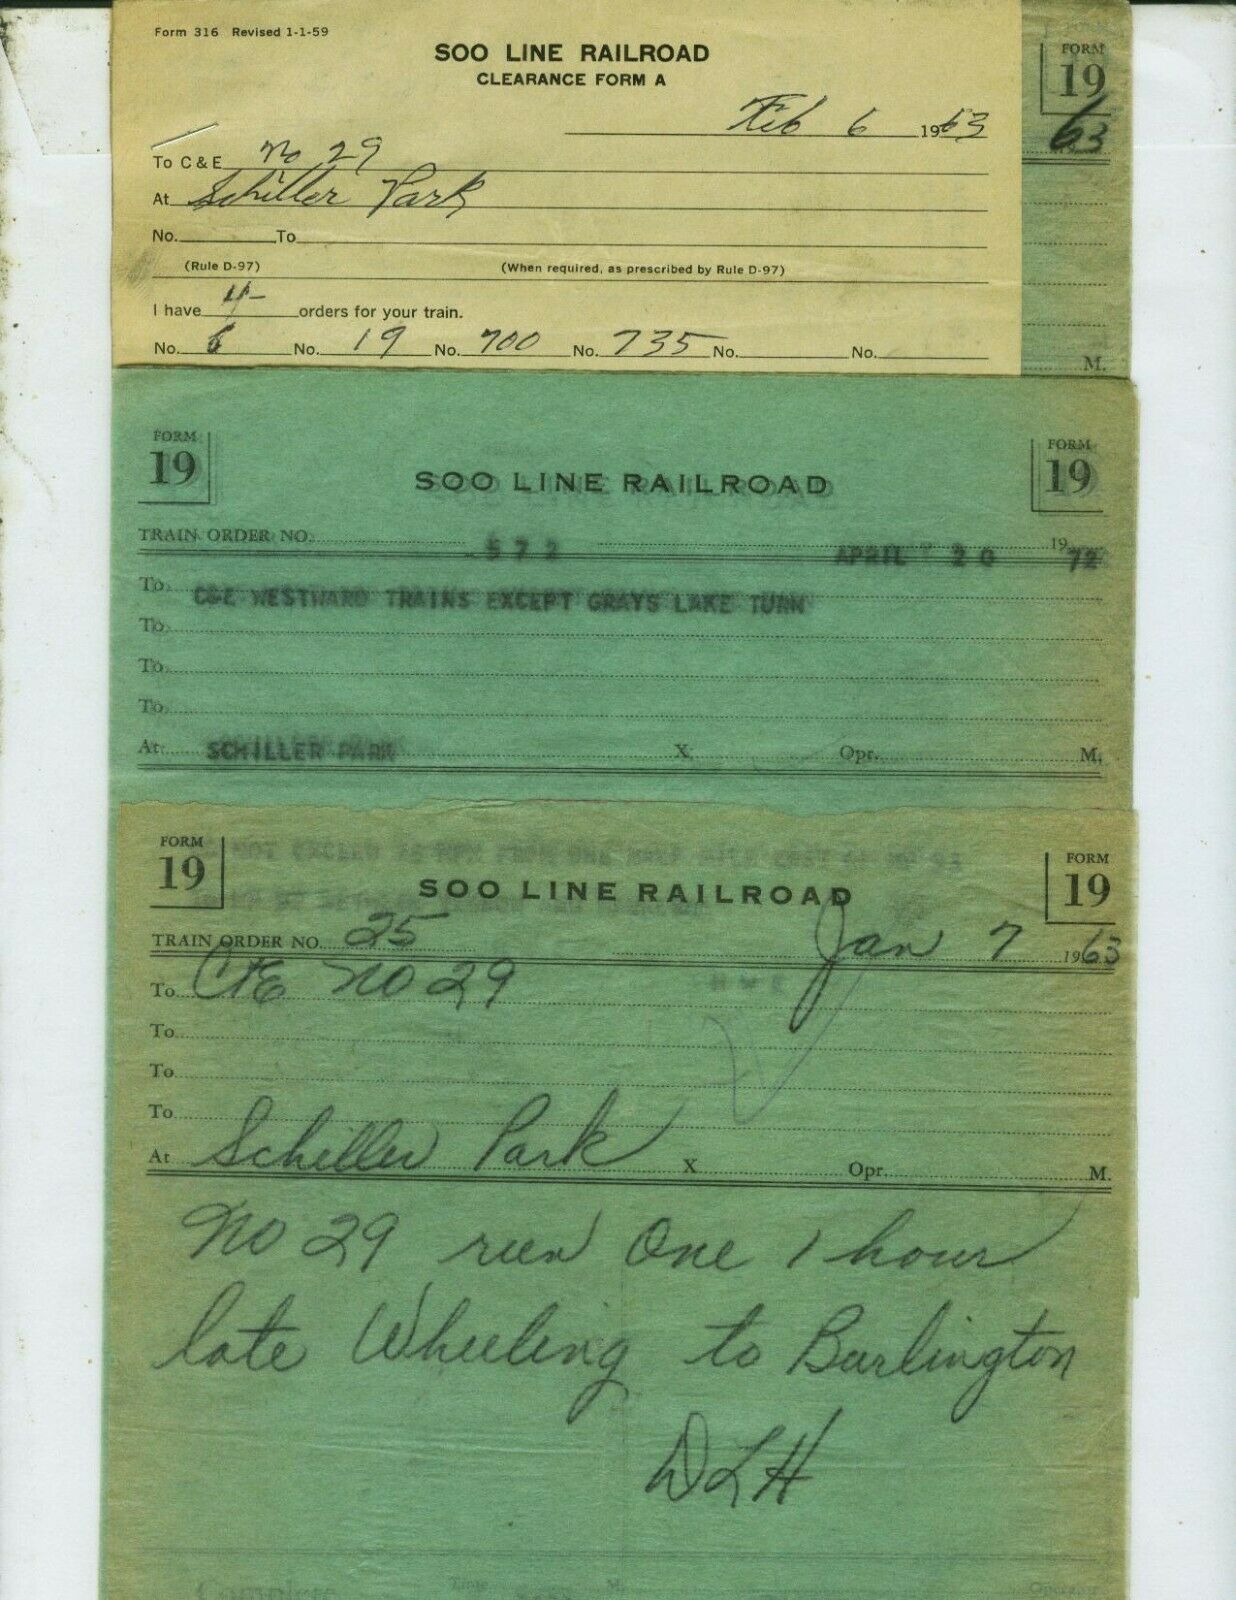 Form 316 Revised 1-1-59
SOO LINE RAILROAD
CLEARANCE FORM A
Feb 6 1963
To C & E No 29
At Schiller Park
No. To
(Rule D-97) (When required, as prescribed by Rule D-97)
I have 4 orders for your train.
No. 6 No. 19 No. 700 No. 735 No. No.
FORM
19
63
M.
FORM
19
FORM
19
SOO LINE RAILROAD
TRAIN ORDER NO. 572 APRIL 20 1972
To C&E WESTWARD TRAINS EXCEPT GRAYS LAKE TURN
To
To
To
At SCHILLER PARK X Opr. M.
NOT EXCEED MPH FROM ONE HALF MILE EAST 93
FORM
19
FORM
19
SOO LINE RAILROAD
TRAIN ORDER NO. 25 Jan 7 1963
To C&E No 29
To
To
To
At Schiller Park X Opr. M.
No 29 run One 1 hour
late Wheeling to Burlington
DLH
Complete Time M. Operator